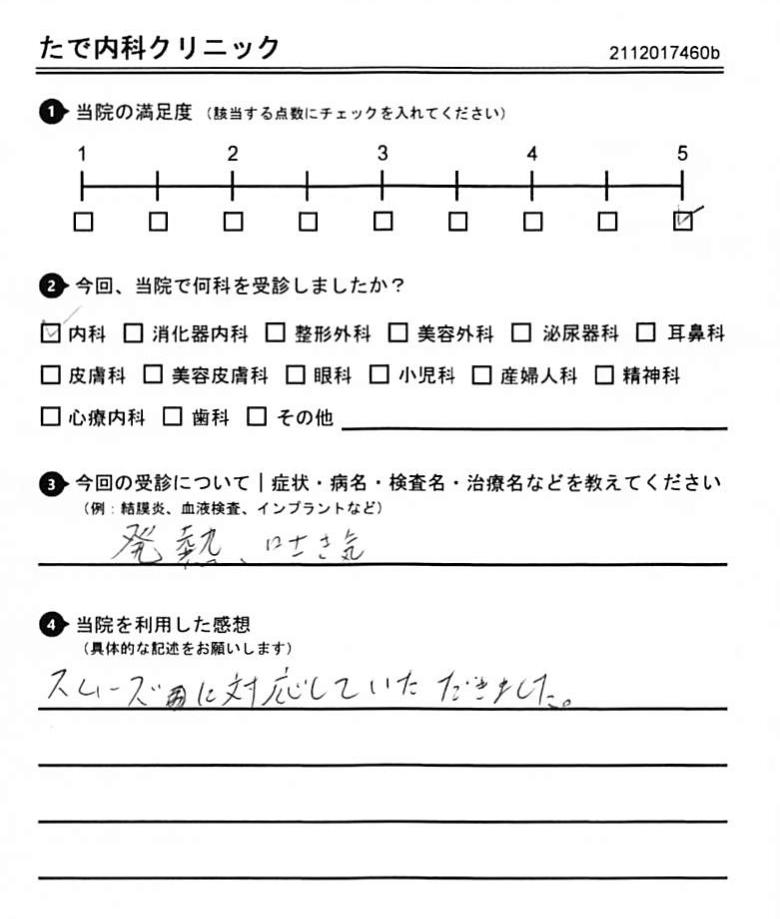 たで内科クリニック 2112017460b
1 当院の満足度 (該当する点数にチェックを入れてください)
1 2 3 4 5
2 今回、当院で何科を受診しましたか？
内科 消化器内科 整形外科 美容外科 泌尿器科 耳鼻科
皮膚科 美容皮膚科 眼科 小児科 産婦人科 精神科
心療内科 歯科 その他
3 今回の受診について｜症状・病名・検査名・治療名などを教えてください
(例：結膜炎、血液検査、インプラントなど)
発熱、吐き気
4 当院を利用した感想
(具体的な記述をお願いします)
スムーズに対応していただきました。